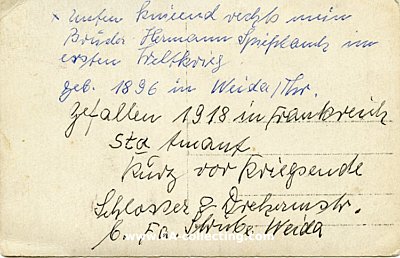 x unten knieend rechts mein
Bruder Hermann im
ersten Weltkrieg.
geb. 1896 in Weida/Thr.
Gefallen 1918 in Frankreich
Sta Amant
Kurz vor Kriegsende
Schlosser & Drehermstr.
b. Fa. Weida